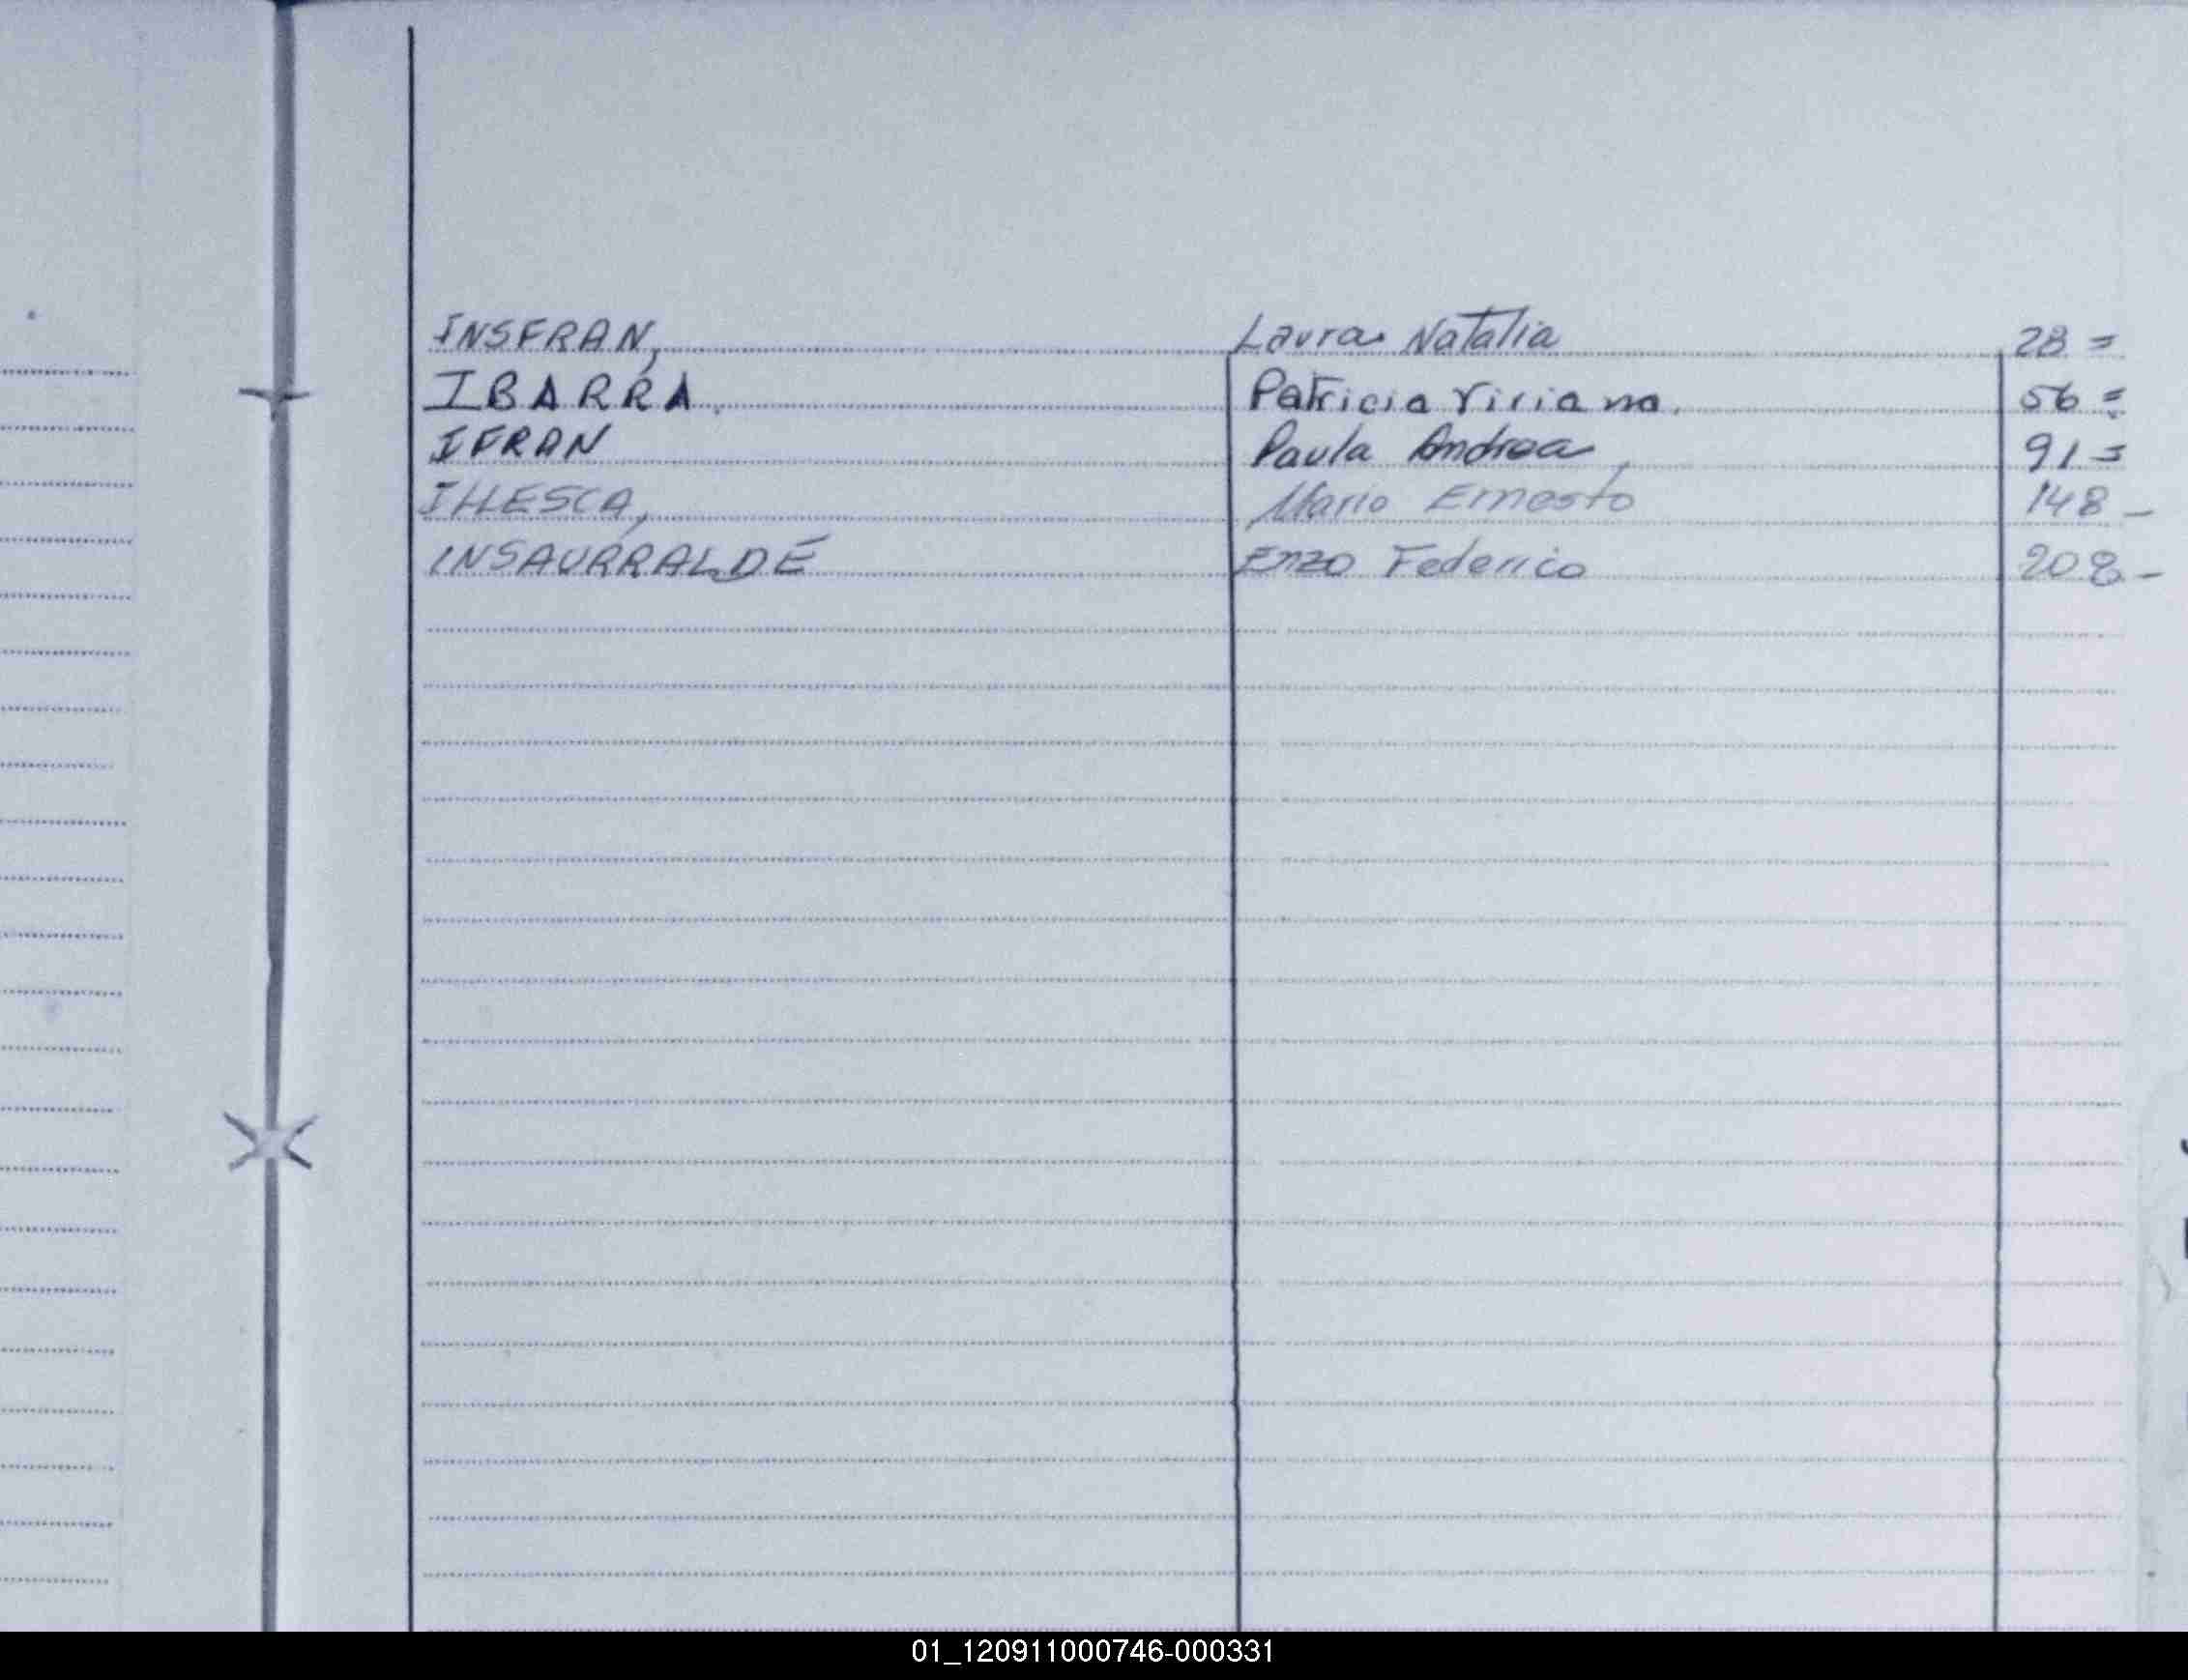 INSFRAN, Laura Natalia 28 =
IBARRA. Patricia Viviana. 56 =
IFRAN Paula Andrea, 91 =
ILLESCA, Mario Ernesto 148 -
INSAURRALDE Enzo Federico 208 -
01_120911000746-000331